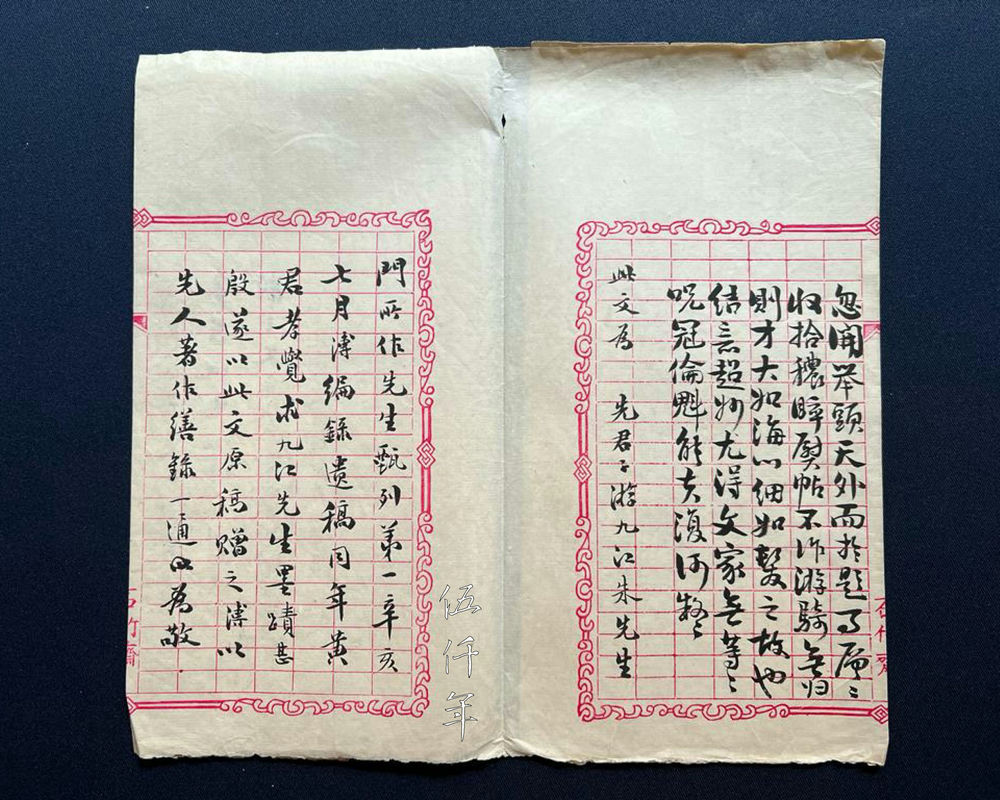 忽開举頭天外而於題事層〻
收拾穠睟熨帖不作游騎無归
則才大如海心細如髮之故也
結意超妙尤得文家無等〻
呪冠倫魁能夫復何
此文為 先君子游九江朱先生
石竹齋
門所作先生甄列第一辛亥
七月溥編錄遺稿同年黃
君孝覺求九江先生墨蹟甚
殷遂以此文原稿贈之溥以
先人著作繕錄一通以為敬
石竹齋
伍仟年